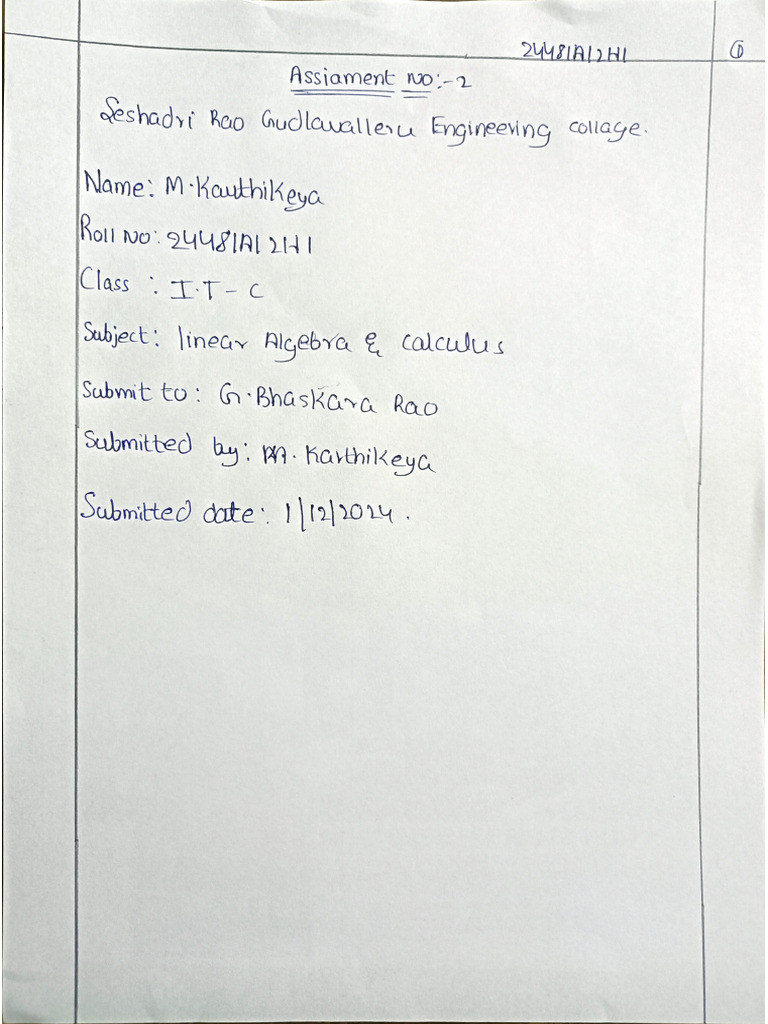 24481A12H1
①
Assiament no:-2
Seshadri Rao Gudlavalleru Engineering collage.
Name: M.Karthikeya
Roll no: 24481A12H1
Class : I.T - C
Subject: linear Algebra & calculus
Submit to: G.Bhaskara Rao
Submitted by: M.Karthikeya
Submitted date: 1/12/2024.